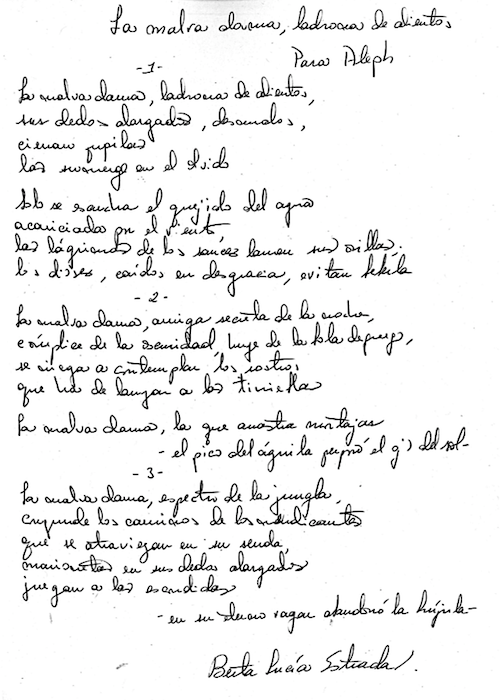 La malva dama, ladrona de alientos
Para Aleph
-1-
La malva dama, ladrona de alientos,
sus dedos alargados, desnudos,
cierran pupilas
las sumerge en el olvido
Sólo se escucha el quejido del agua
acariciada por el viento
las lágrimas de los sauces lamen sus orillas.
los dioses, caídos en desgracia, evitan
-2-
La malva dama, amiga secreta de la noche,
cómplice de la oscuridad, huye de la bola de fuego,
se niega a contemplar los rostros
que ha de lanzar a las tinieblas
La malva dama, la que arrastra mortajas
- el pico del águila perforó el ojo del sol-
-3-
La malva dama, espectro de la jungla,
confunde los caminos de los mendicantes
que se atraviezan en su senda,
marionetas en sus dedos alargados
juegan a las escondidas
- en su vagar abandonó la brújula-
Berta Lucía Estrada